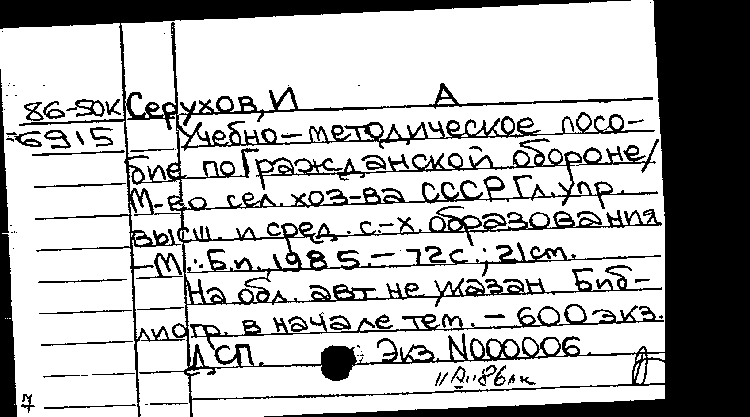 86-50к Серухов, И А
6915 Учебно-методическое посо-
бие по Гражданской обороне/
М-во сел. хоз-ва СССР, Гл. упр.
высш. и сред. с.-х. образования
-М.: Б.п., 1985.- 72с.; 21см.
На обл. авт не указан Биб-
лиогр. в начале тем. - 600 экз.
ДСП. Экз. N000006.
7